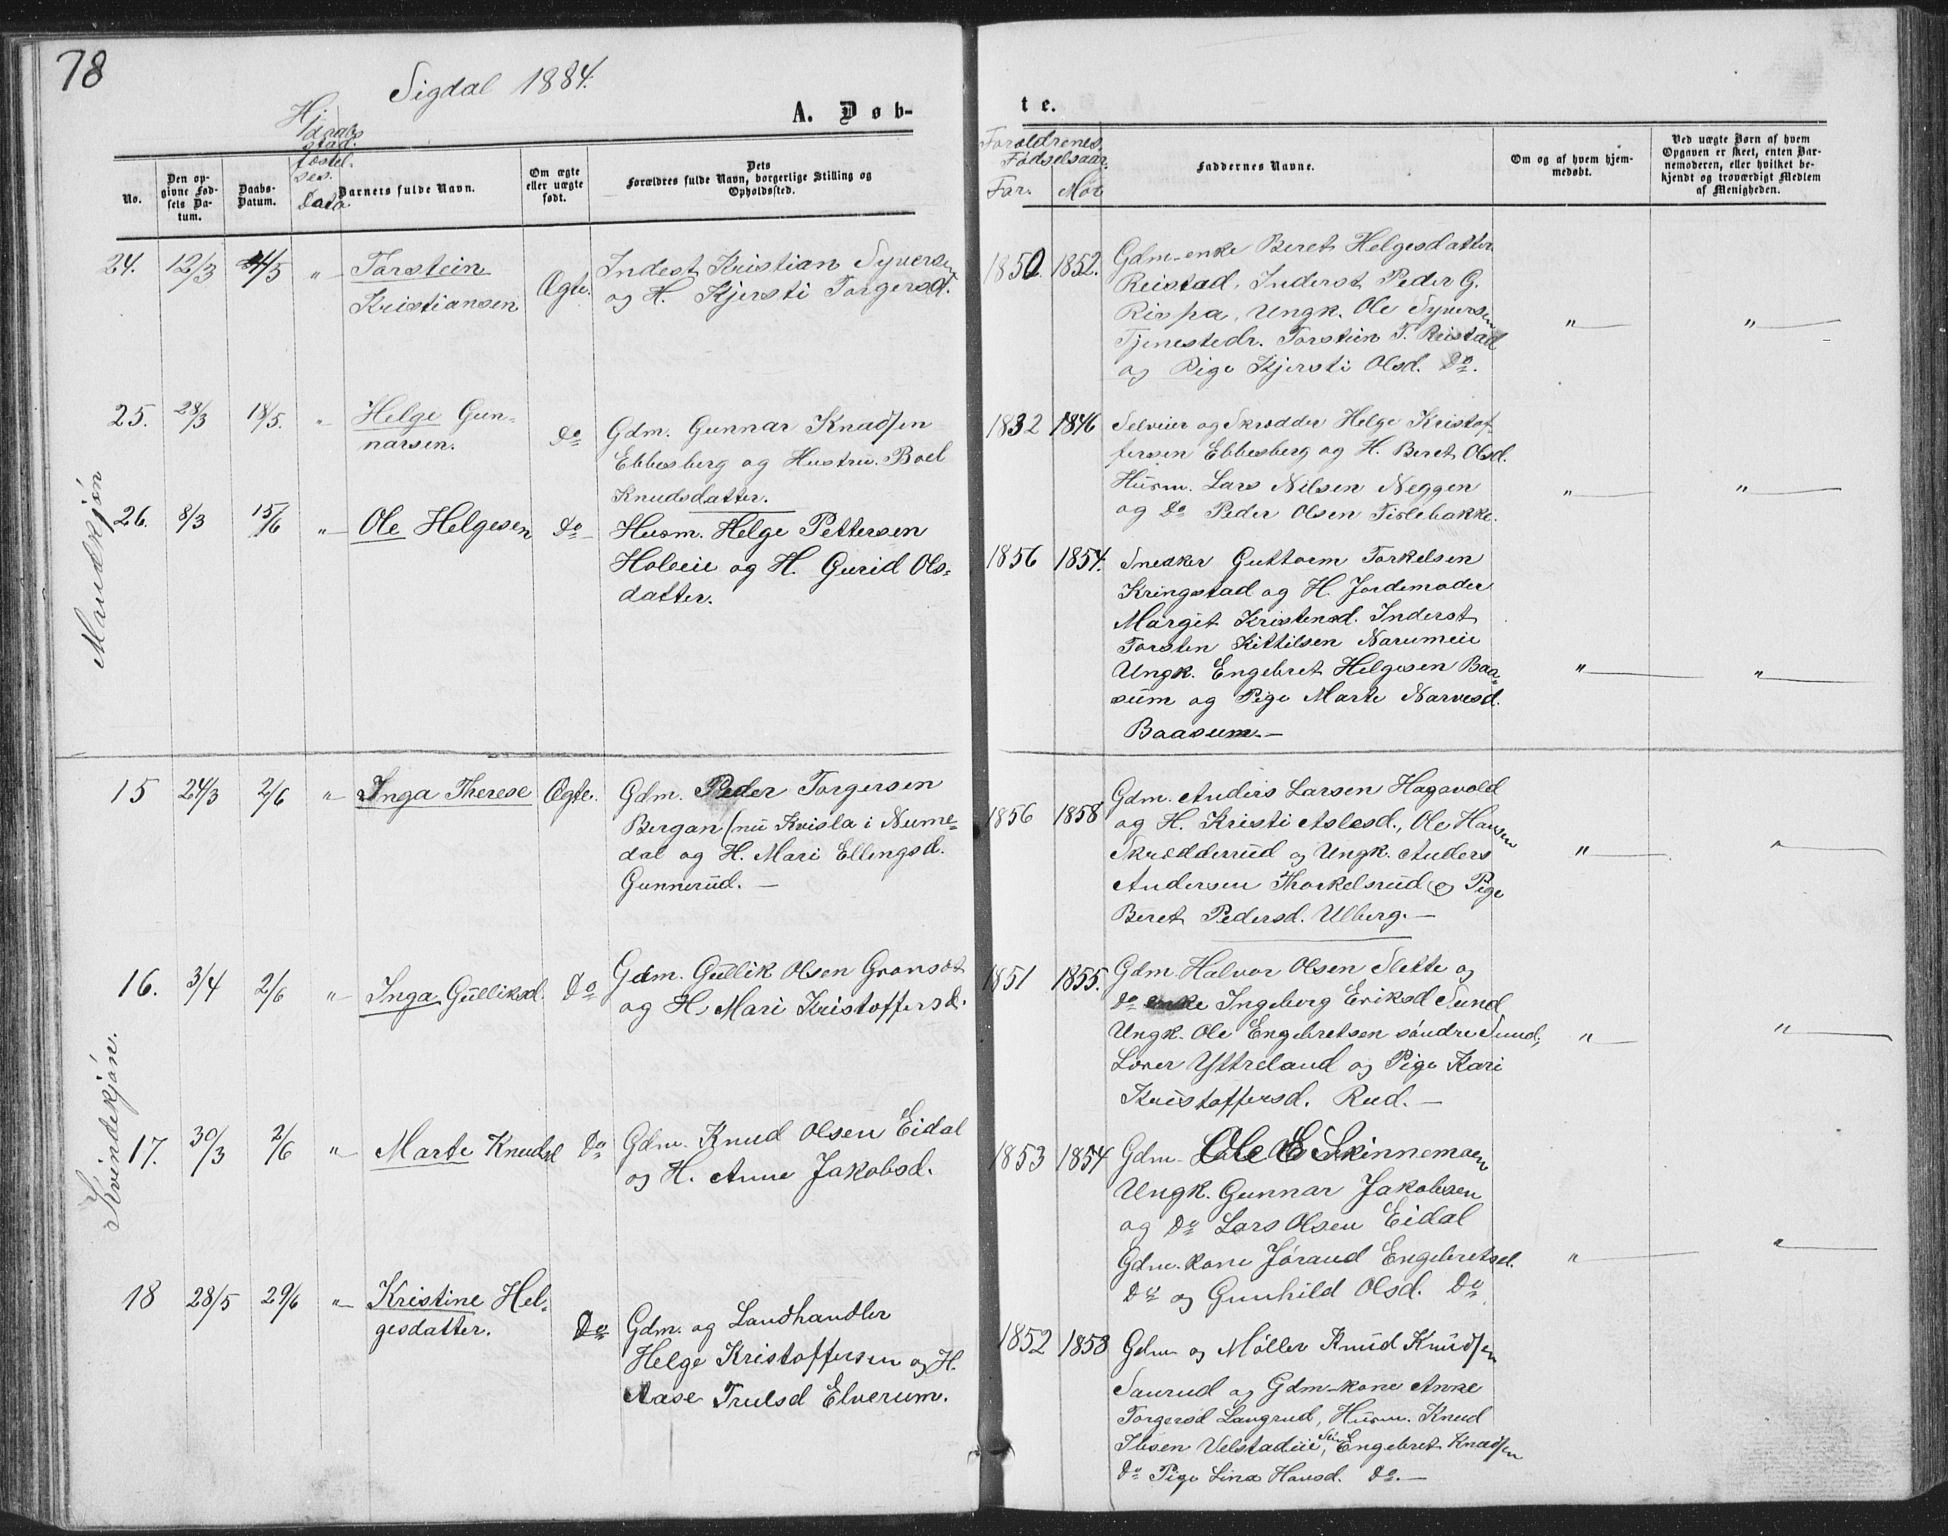 78
Sigdal 1884.
A. Døb-
te.
No.
Den opgivne Fødsels Datum.
Daabs-Datum.
Hjdaabs stadfæstelses. Dato
Barnets fulde Navn.
Om ægte eller uægte født.
Dets Forældres fulde Navn, borgerlige Stilling og Opholdssted.
Forældrenes Fødselsaar.
Far. Mor
Faddernes Navne.
Om og af hvem hjemmedøbt.
Ved uægte Børn af hvem Opgaven er skeet, enten Barnemoderen, eller hvilket bekjendt og troværdigt Medlem af Menigheden.
Mandkjøn
24. 12/3 4/5 " Torstein
Kristiansen
Ægte.
Inderst Kristian Syversen
og H. Kjersti Torgersd.
1850. 1852.
Gdm.enke Beret Helgesdatter
Reistad, Inderst Peder G.
Rispa, Ungk. Ole Syversen
Tjenestedr. Torstein T. Reistad
og Pige Kjersti Olsd. Do.
" "
25. 28/3 18/5. " Helge Gun-
narsen.
Do
Gdm. Gunnar Knudsen
Ebbesberg og Hustru. Boel
Knudsdatter.
1832 1846
Selveier og Skrædder Helge Kristof-
fersen Ebbesberg og H. Beret Olsd.
Husm. Lars Nilsen Neggen
og Do Peder Olsen Tislebakke.
" "
26. 8/3 15/6 " Ole Helgesen Do
Husm. Helge Pettersen
Holeie og H. Gurid Ols-
datter.
1856 1854.
Snedker Guttorm Torkelsen
Kringstad og H. Jordemoder
Margit Kristensd. Inderst
Torsten Kittilsen Narumeie
Ungk. Engebret Helgesen Baa-
sum og Pige Marte Narvesd.
Baasum.
" "
Kvindekjøn.
15 24/3 2/6 " Inga Therese Ægte.
Gdm. Peder Torgersen
Bergan/nu Kvisla i Nume-
dal og H. Mari Ellingsd.
Gunnerud.
1856 1858
Gdm. Anders Larsen Hagavold
og H. Kristi Aslesd., Ole Hansen
Skrædderrud og Ungk. Anders
Andersen Thorkelsrud og Pige
Beret Pedersd. Ulberg.
" "
16. 3/4 2/6 " Inga Gulliksd. Do
Gdm. Gullik Olsen Gronset
og H. Mari Kristoffersd.
1851 1855.
Gdm. Halvor Olsen Slette og
Do enke Ingeborg Eriksd Sund
Ungk. Ole Engebretsen søndre Sund,
Lærer Yttreland og Pige Kari
Kristoffersd. Rud.
" "
17. 30/3 2/6 " Marte Knudsd Do
Gdm. Knud Olsen Eidal
og H. Anne Jakobsd.
1853 1854
Gdm. Ole E Skinnemoen
Ungk. Gunnar Jakobsen
og Do Lars Olsen Eidal
Gdm.kone Jørand Engebretsd.
Do og Gunhild Olsd. Do
" "
18 28/5 29/6 " Kristine Hel-
gesdatter.
Do
Gdm. og Landhandler
Helge Kristoffersen og H.
Aase Trulsd Elverum.
1852 1858
Gdm og Møller Knud Knudsen
Saurud og Gdm-kone Anne
Torgersd Langrud, Husm. Knud
Ibsen Velstadeie, Engebret Knudsen
Do Pige Lina Hansd. Do.